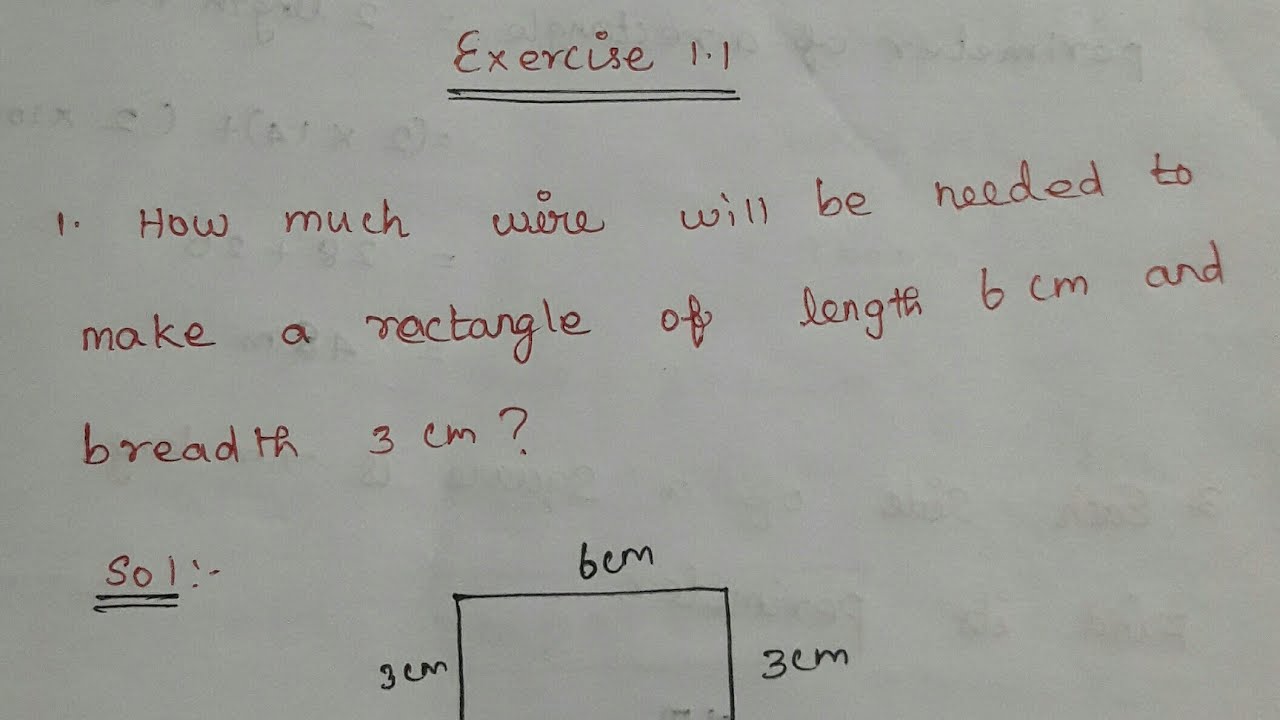 Exercise 1.1
1. How much wire will be needed to
make a rectangle of length 6 cm and
breadth 3 cm?
Sol:-
6cm
3cm
3cm